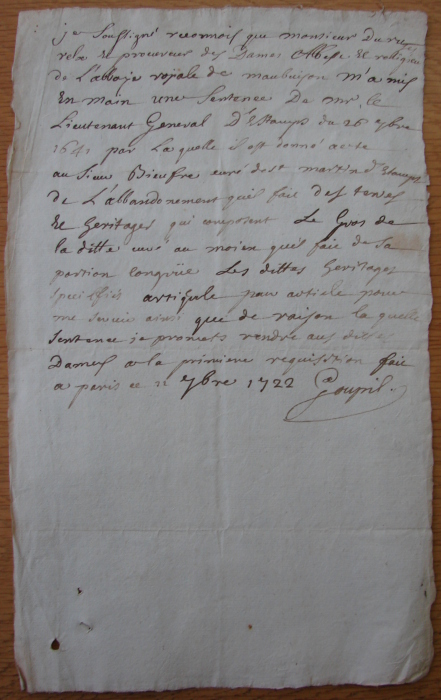 je soussigné reconnois que monsieur Du
relx et procureur des Dames Abbesse et religieu
De L'abbaje roÿale de maubuisson m'a mis
En main une Sentence De mr. le
Lieutenant General D'Estampes du 26 7bre
1641 par Laquelle il est donné acte
au Sieur Bieufve curé de st martin d'Estampes
de L'abbandonnement qu'il fait des terres
Et heritages qui composent Le Gros de
la ditte cure au moien qu'il fait de sa
portion congrüe Les dittes heritages
speciffiés article par article pour
me servir ainsi que de raison la quelle
sentence je promets rendre aus dittes
Dames a la premiere requisition fait
a paris ce 7bre 1722 Goupil